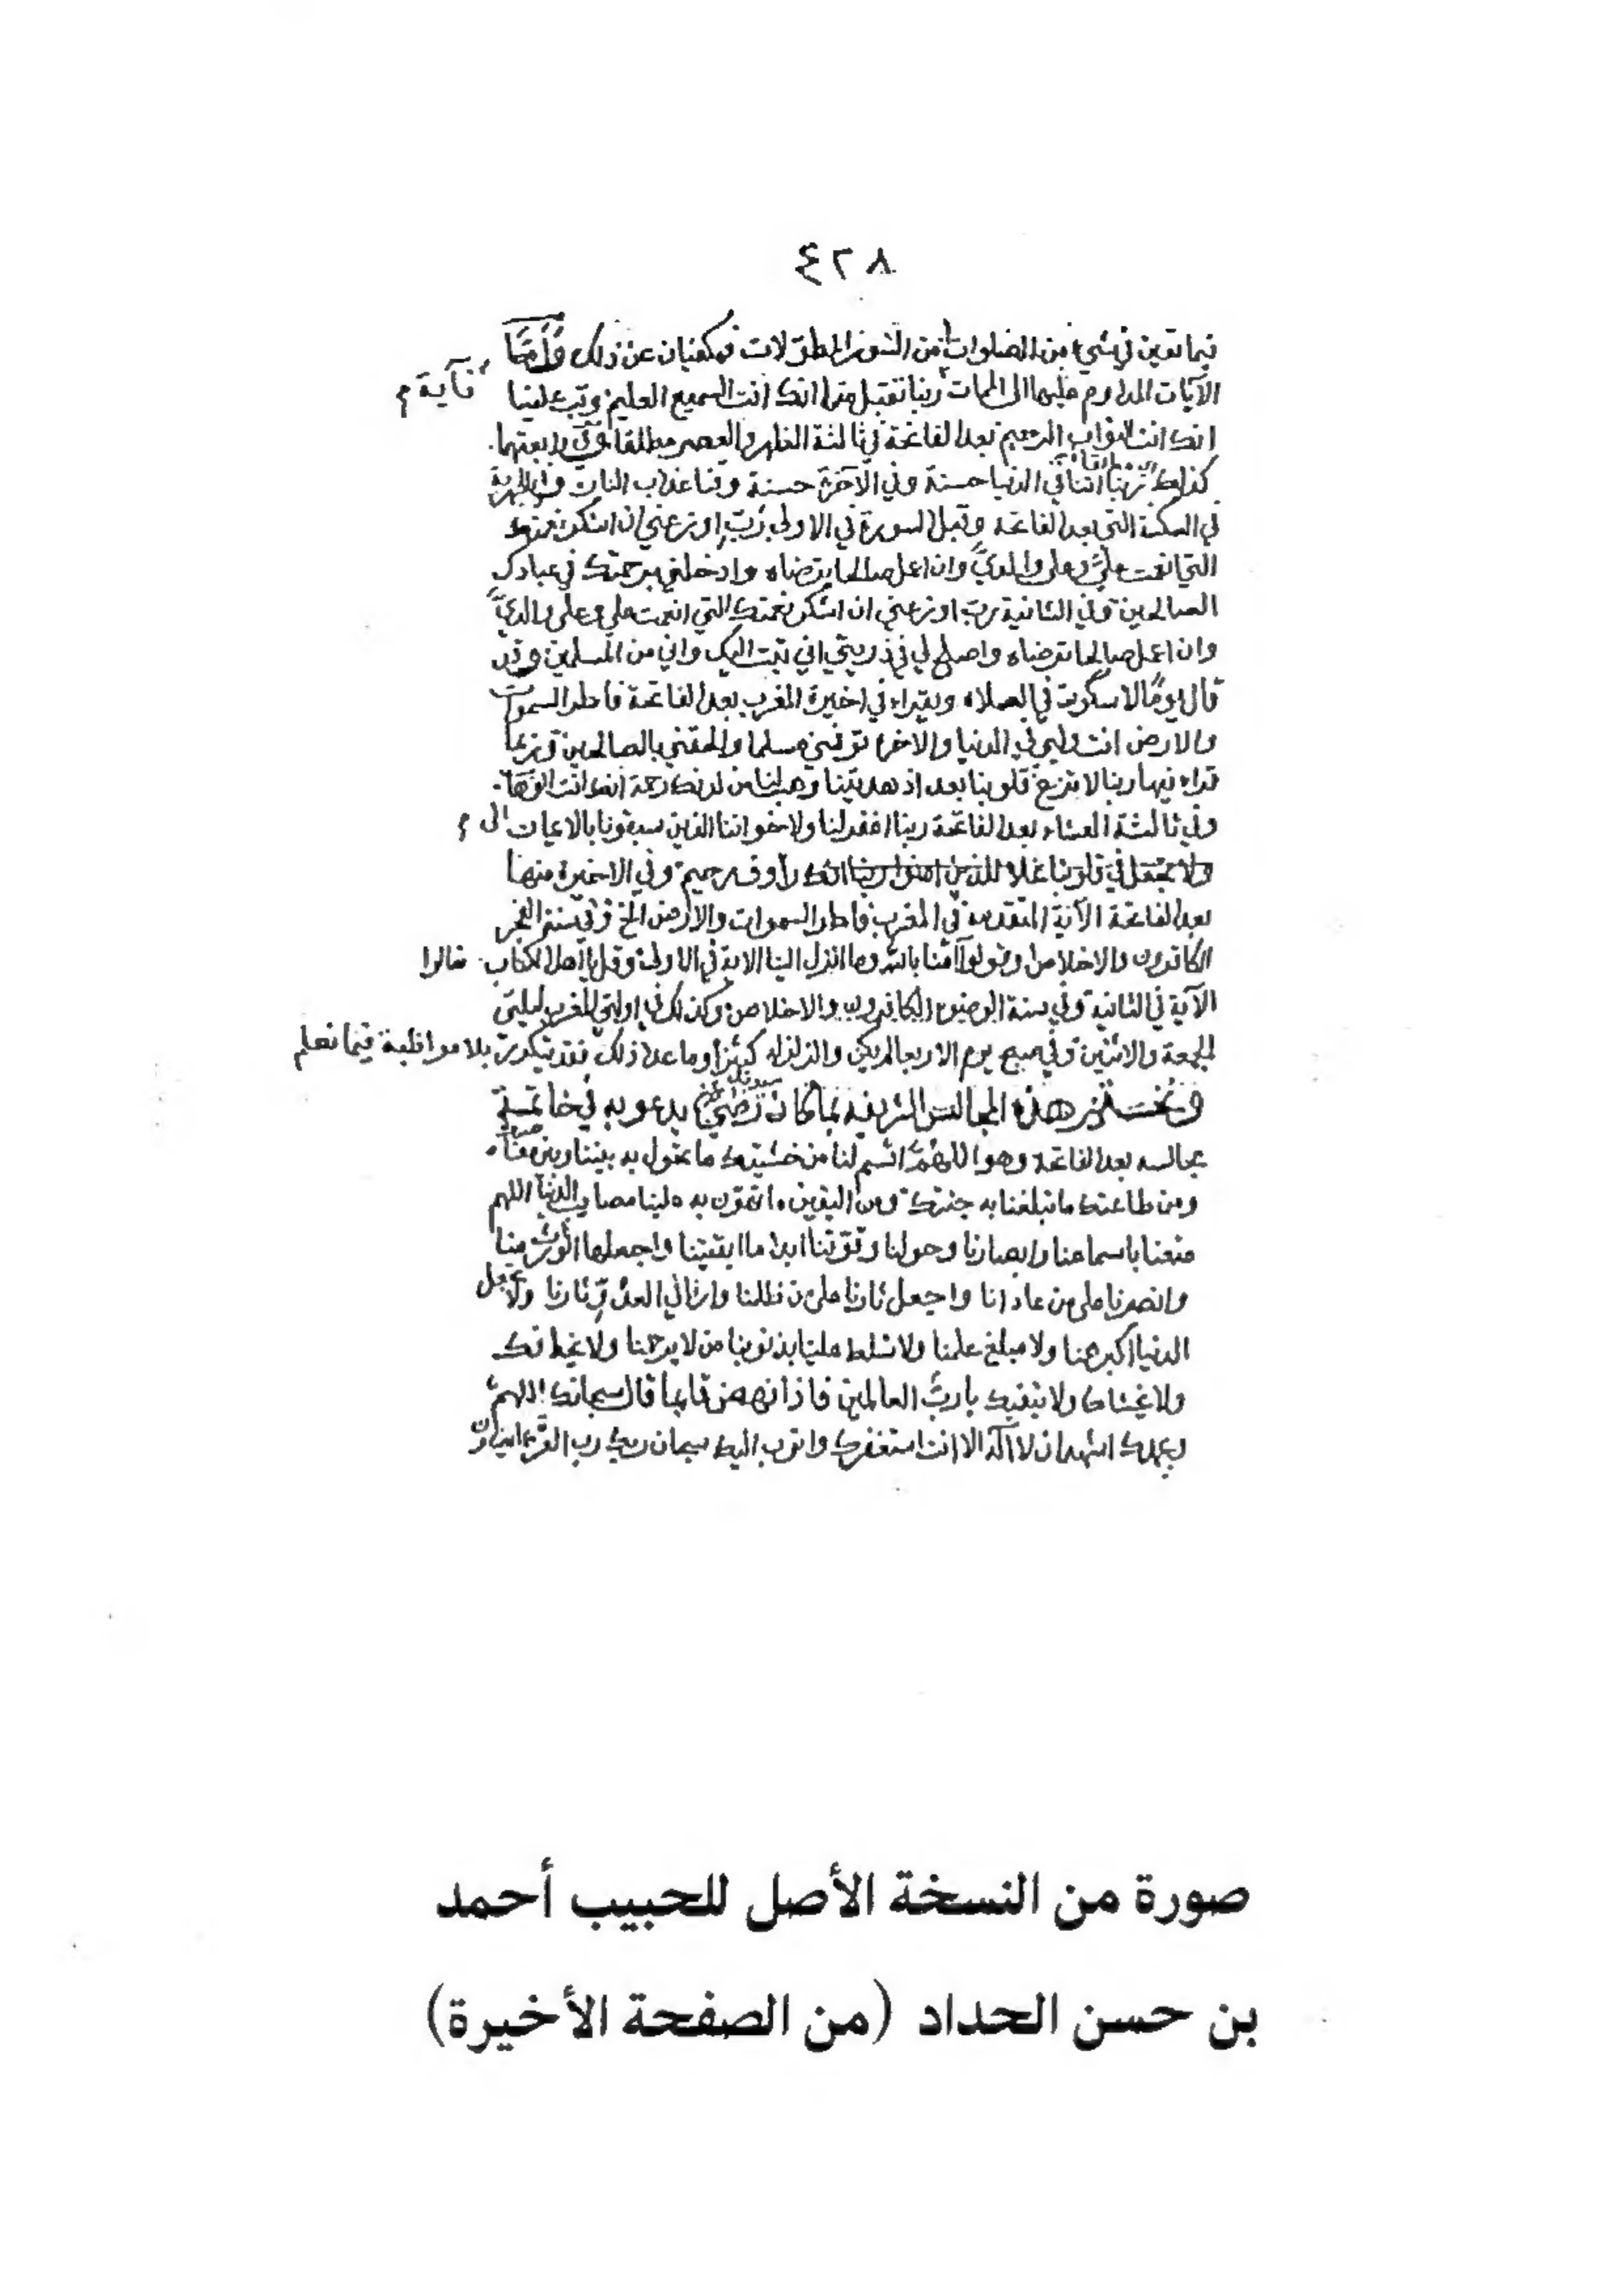 ٤٢٨
فيما تعين في شيء من الصلوات من السور المطولات فيكفيان عن ذلك وأما
الآيات المداوم عليها الى الممات ربنا تقبل منا انك انت السميع العليم وتب علينا فآية
انك انت التواب الرحيم بعد الفاتحة في ثالثة الظهر والعصر مطلقا وفي رابعتهما
كذلك ربنا اتنا في الدنيا حسنة وفي الآخرة حسنة وقنا عذاب النار
في السكتة التي بعد الفاتحة وقبل السورة في الاولى رب اوزعني ان اشكر نعمتك
التي انعمت علي وعلى والدي وان اعمل صالحا ترضاه وادخلني برحمتك في عبادك
الصالحين وفي الثانية رب اوزعني ان اشكر نعمتك التي انعمت علي وعلى والدي
وان اعمل صالحا ترضاه واصلح لي في ذريتي اني تبت اليك واني من المسلمين
قال يوما لا سكوت في الصلاه ويقراء في اخيرة المغرب بعد الفاتحة فاطر السموات
والارض انت وليي في الدنيا والاخرة توفني مسلما والحقني بالصالحين وربما
قراء فيها ربنا لا تزغ قلوبنا بعد اذ هديتنا وهب لنا من لدنك رحمة انك انت الوهاب
وفي ثالثة العشاء بعد الفاتحة ربنا اغفر لنا ولاخواننا الذين سبقونا بالايمان الى
ولا تجعل في قلوبنا غلا للذين امنوا ربنا انك رأوف رحيم وفي الاخيرة منها
بعد الفاتحة الآية المتقدمة في المغرب فاطر السموات والارض الخ وفي سنة الفجر
الكافرون والاخلاص او قولوا آمنا بالله وما انزل الينا الاية في الاولى وقل يا اهل الكتاب تعالوا
الآية في الثانية وفي سنة الوضوء الكافرون والاخلاص وكذلك في اولتي المغرب ليلتي
الجمعة والاثنين وفي صبح يوم الاربعا لم يكن والزلزله كثيرا وما عدا ذلك فقد يتكرر بلا مواظبة فيما نعلم
هذه المجالس الشريفه بما كان سيدنا رضي الله عنه يدعو به في خاتمة
مجالسه بعد الفاتحة وهو اللهم اقسم لنا من خشيتك ما تحول به بيننا وبين معاصيك
ومن طاعتك ما تبلغنا به جنتك ومن اليقين ما تهون به علينا مصايب الدنيا اللهم
متعنا باسماعنا وابصارنا وحولنا وقوتنا ابدا ما ابقيتنا واجعلها الوارث منا
وانصرنا على من عادانا واجعل ثارنا على من ظلمنا وارنا في العدو ثارنا ولا تجعل
الدنيا اكبر همنا ولا مبلغ علمنا ولا تسلط علينا بذنوبنا من لا يرحمنا ولا يخافك
ولا يخشاك ولا يتقيك يا رب العالمين فاذا نهض قايما قال سبحانك اللهم
وبحمدك اشهد ان لا اله الا انت استغفرك واتوب اليك سبحان ربك رب العزة عما يصفون
صورة من النسخة الأصل للحبيب أحمد
بن حسن الحداد (من الصفحة الأخيرة)